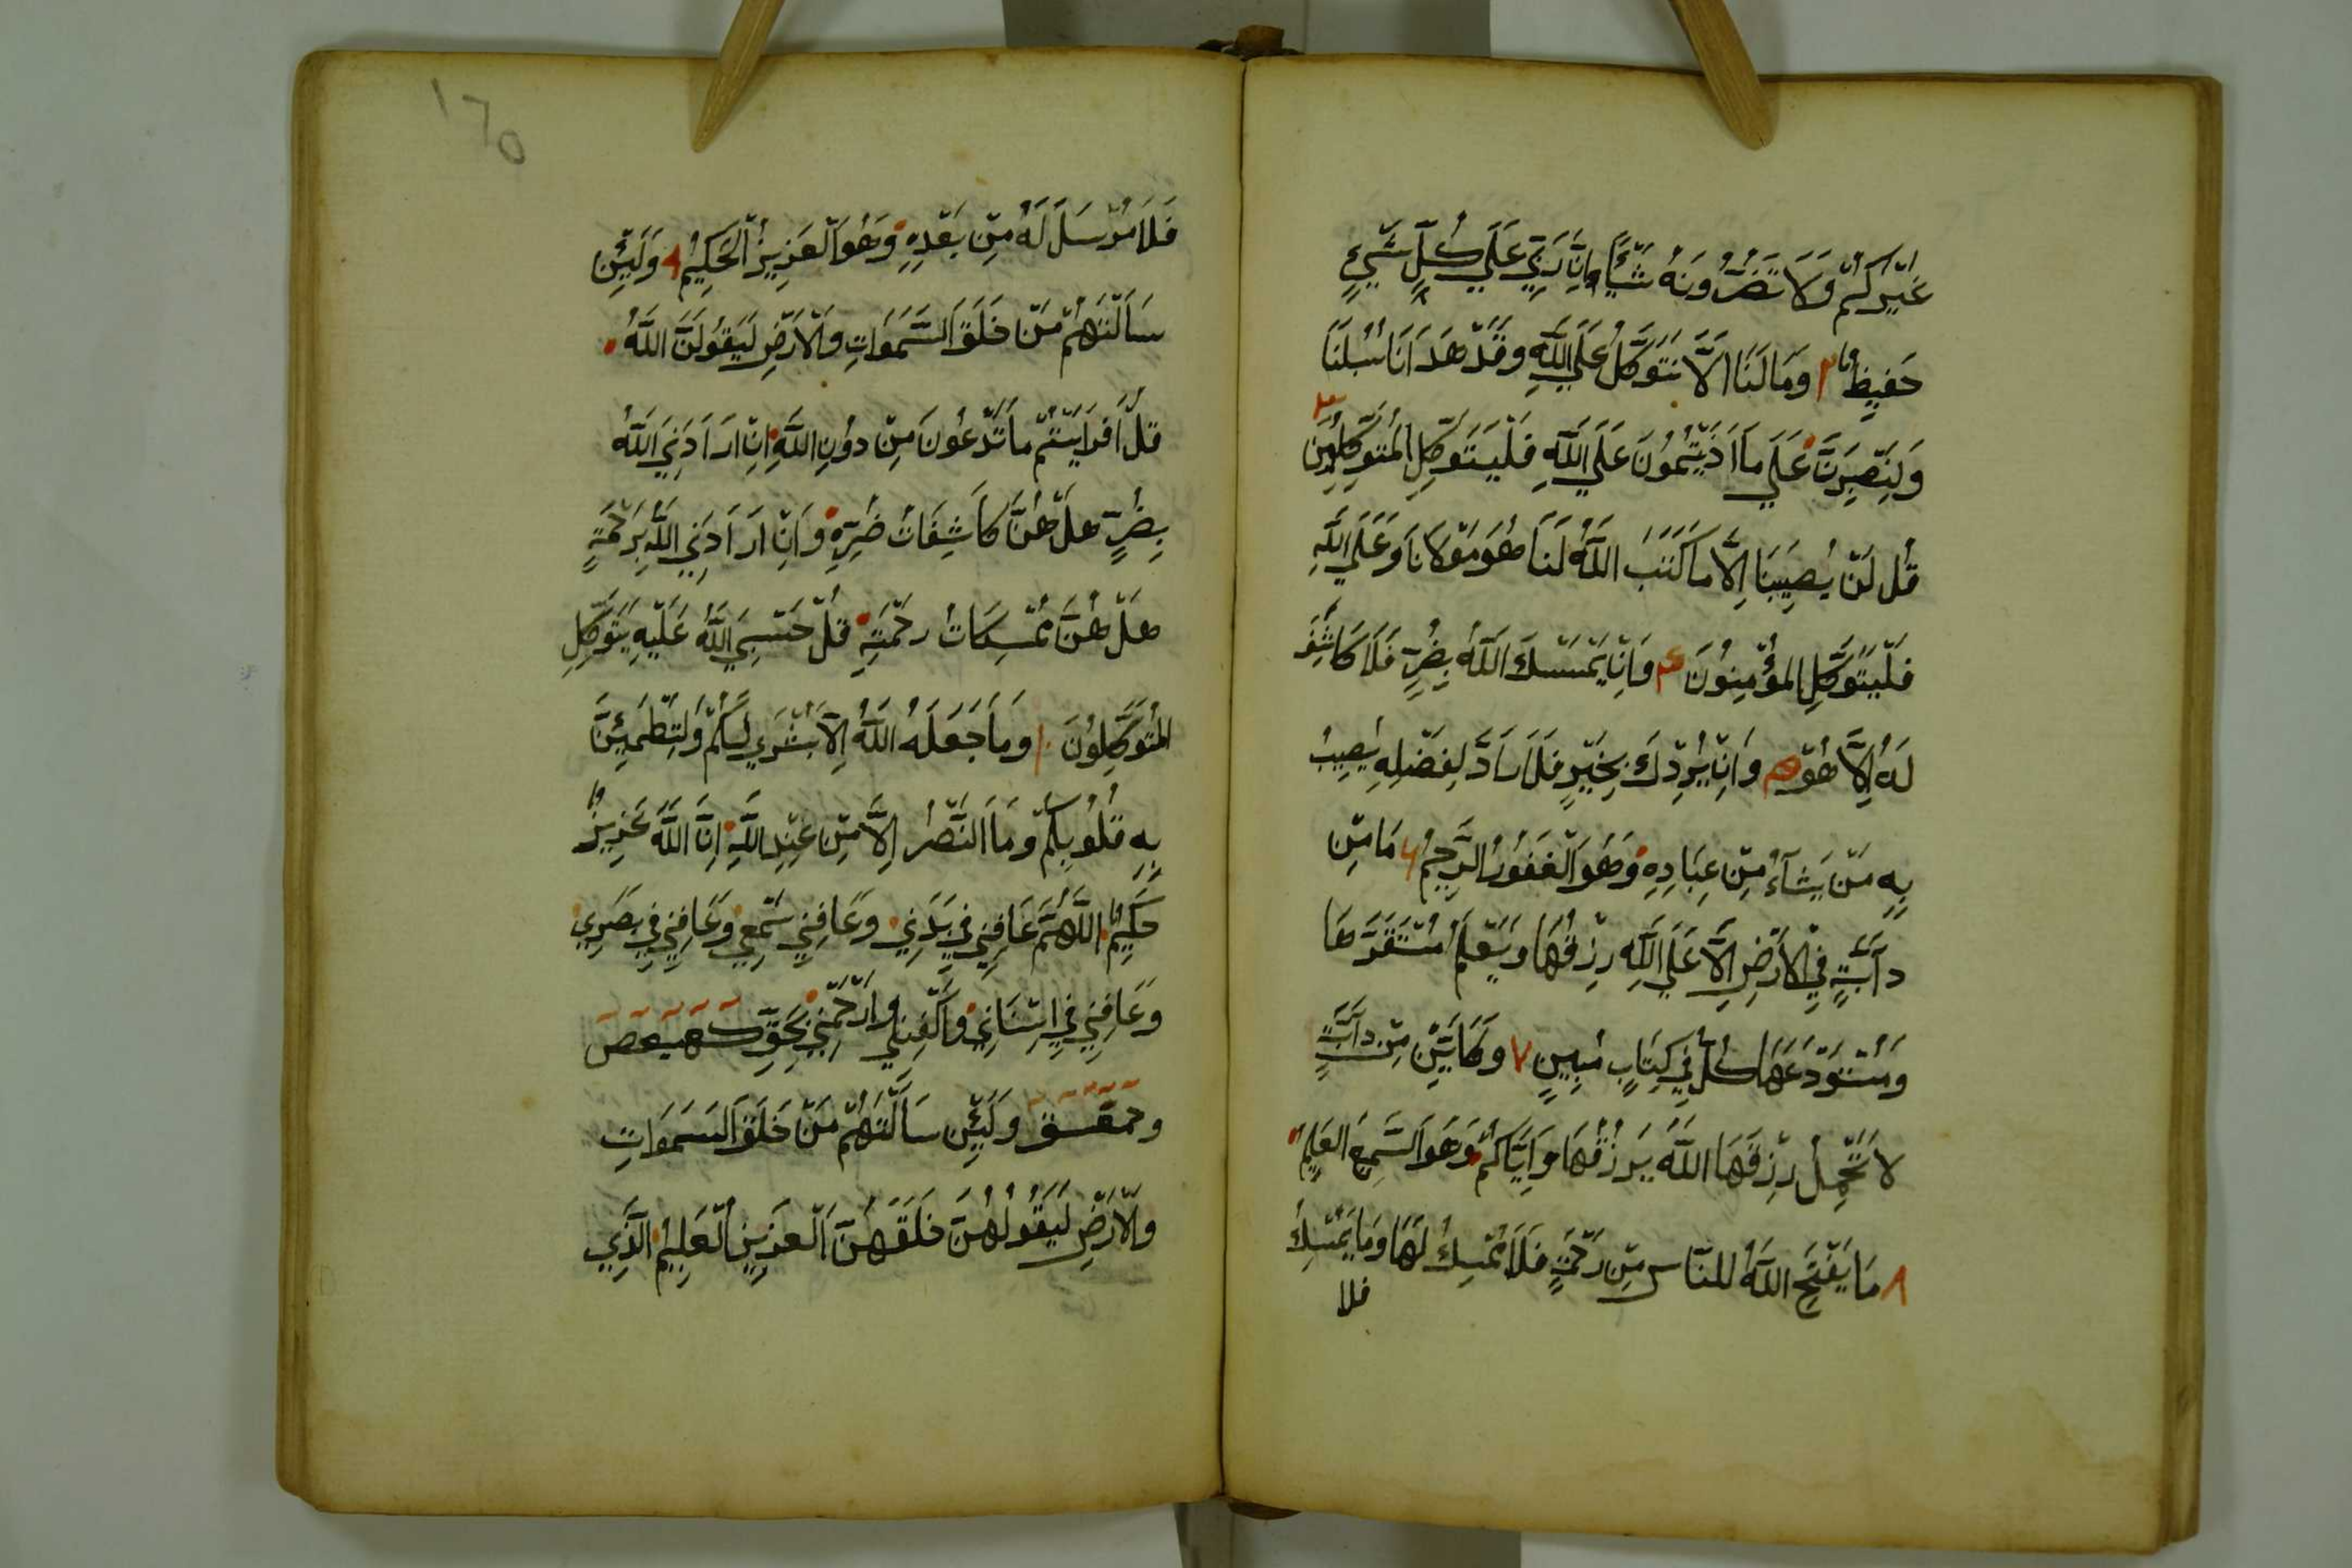 غَيْرَكُمْ وَلَا تَضُرُّونَهُ شَيْئًا اِنَّ رَبِّي عَلَي كُلِّ شَيْءٍ
حَفِيظٌ ٢ وَمَا لَنَا اَلَّا نَتَوَكَّلَ عَلَي اللَّهِ وَقَدْ هَدَانَا سُبُلَنَا
وَلَنَصْبِرَنَّ عَلَي مَا اَذَيْتُمُونَ عَلَي اللَّهِ فَلْيَتَوَكَّلِ الْمُتَوَكِّلُونَ ٣
قُل لَنْ يُصِيبَنَا اِلَّا مَا كَتَبَ اللَّهُ لَنَا هُوَ مَوْلَانَا وَعَلَي اللَّهِ
فَلْيَتَوَكَّلِ الْمُؤْمِنُونَ ۴ وَاِنْ يَمْسَسْكَ اللَّهُ بِضُرٍّ فَلَا كَاشِفَ
لَهُ اِلَّا هُوَ ۵ وَاِنْ يُرِدْكَ بِخَيْرٍ فَلَا رَادَّ لِفَضْلِهِ يُصِيبُ
بِهِ مَنْ يَشَآءُ مِنْ عِبَادِهِ وَهُوَ الْغَفُورُ الرَّحِيمُ ۶ مَا مِنْ
دآبَّةٍ فِي الْاَرْضِ اِلَّا عَلَي اللَّهِ رِزْقُهَا وَيَعْلَمُ مُسْتَقَرَّهَا
وَمُسْتَوْدَعَهَا كُلٌّ فِي كِتَابٍ مُبِينٍ ٧ وَكَاَيِّنْ مِنْ دَآبَّةٍ
لَا تَحْمِلُ رِزْقَهَا اللَّهُ يَرْزُقُهَا وَاِيَّاكُمْ وَهُوَ السَّمِيعُ الْعَلِيمُ
٨ مَا يَفْتَحِ اللَّهُ لِلنَّاسِ مِنْ رَحْمَةٍ فَلَا مُمْسِكَ لَهَا وَمَا يُمْسِكْ
فلا
١٦٥
فَلَا مُرْسِلَ لَهُ مِنْ بَعْدِهِ وَهُوَ الْعَزِيزُ الْحَكِيمُ ٩ وَلَئِنْ
سَاَلْتَهُمْ مَنْ خَلَقَ السَّمَوَاتِ وَالْاَرْضِ لَيَقُولُنَّ اللَّهُ
قُلْ اَفَرَاَيْتُمْ مَا تَدْعُونَ مِنْ دُونِ اللَّهِ اِنْ اَرَادَنِيَ اللَّهُ
بِضُرٍّ هَلْ هُنَّ كَاشِفَاتُ ضُرِّهِ وَاِنْ اَرَادَنِي اللَّهُ بِرَحْمَةٍ
هَلْ هُنَّ مُمْسِكَاتُ رَحْمَتِهِ قُلْ حَسْبِيَ اللَّهُ عَلَيْهِ يَتَوَكَّلِ
الْمُتَوَكِّلُونَ ١٠ وَمَا جَعَلَهُ اللَّهُ اِلَّا بُشْرَي لَكُمْ وَلِتَطْمَئِنَّ
بِهِ قُلُوبُكُمْ وَمَا النَّصْرُ اِلَّا مِنْ عِنْدِ اللَّهِ اِنَّ اللَّهَ عَزِيزٌ
حَكِيمٌ اللَّهُمَّ عَافِنِي فِي بَدَنِي وَعَافِنِي سَمْعِي وَعَافِنِي فِي بَصَرِي
وَعَافِنِي فِي وَاكْفِنِي وَارْحَمْنِي بِحَقِّ كهيعص
وحمعسق وَلَئِنْ سَاَلْتَهُمْ مَنْ خَلَقَ السَمَوَاتِ
وَالْاَرْضِ لَيَقُولُهُنَّ خَلَقَهُنَّ الْعَزِيزُ الْعَلِيمُ الَّذِي